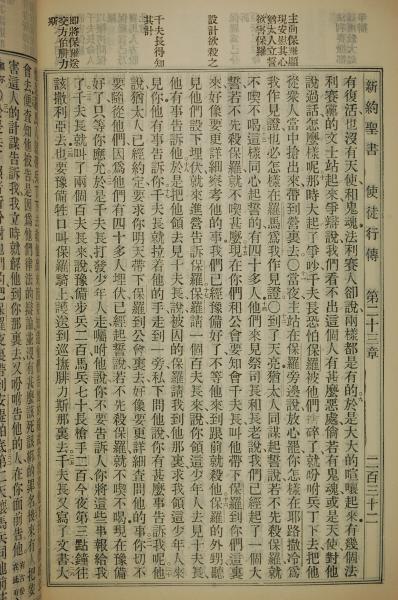 新約聖書 使徒行傳 第二十三章 二百三十二
主向保羅顯
現安慰其心
猶太人立誓
欲害保羅
設計欲殺之
千夫長得知
其計
即將保羅送
交方伯腓力
斯
有復活也沒有天使和鬼魂法利賽人卻說兩樣都是有的於是大大的喧嚷起來有幾個法
利賽黨的文士站起來爭辯說我們看不出這個人有甚麼惡處倘若有鬼魂或是天使對他
說過話怎麼樣呢那時大起了爭吵千夫長恐怕保羅被他們扯碎了就吩咐兵丁下去把他
從衆人當中搶出來帶到營裏去〇當夜主站在保羅旁邊說放心罷你怎樣在耶路撒冷爲
我作見證也必怎樣在羅馬爲我作見證〇到了天亮猶太人同謀起誓說若不先殺保羅就
不喫不喝這樣同心起誓的有四十多人他們來見祭司長和長老說我們已經起了一個大
誓若不先殺保羅就不喫甚麼現在你們和公會要知會千夫長叫他帶下保羅到你們這裏
來好像要更詳細察考他的事我們已經豫備好了不等他來到跟前就殺他保羅的外甥聽
見他們設下埋伏就來進營告訴保羅保羅請一個百夫長來說你領這少年人去見千夫長
他有事告訴他於是把他領去見千夫長說被囚的保羅請我到他那裏求我領這少年人來
見你他有事告訴你千夫長就拉着他的手走到一旁私下問他說你有甚麼事告訴我呢他
說猶太人已經約定要求你明天帶下保羅到公會裏去好像要更詳細查問他的事你切不
要隨從他們因爲他們有四十多人埋伏已經起誓說若不先殺保羅就不喫不喝現在豫備
好了只等你應允於是千夫長打發少年人走囑咐他說你不要告訴人你將這些事報給我
了千夫長就叫了兩個百夫長來說豫備步兵二百馬兵七十長槍手二百今夜第三點鐘往
該撒利亞去也要豫備牲口叫保羅騎上護送到巡撫腓力斯那裏去千夫長又寫了文書大
會去便查知他被告是因爲他們
害這人的計謀告訴我我立時就解他到你那裏去又吩咐告他的人在你面前告他